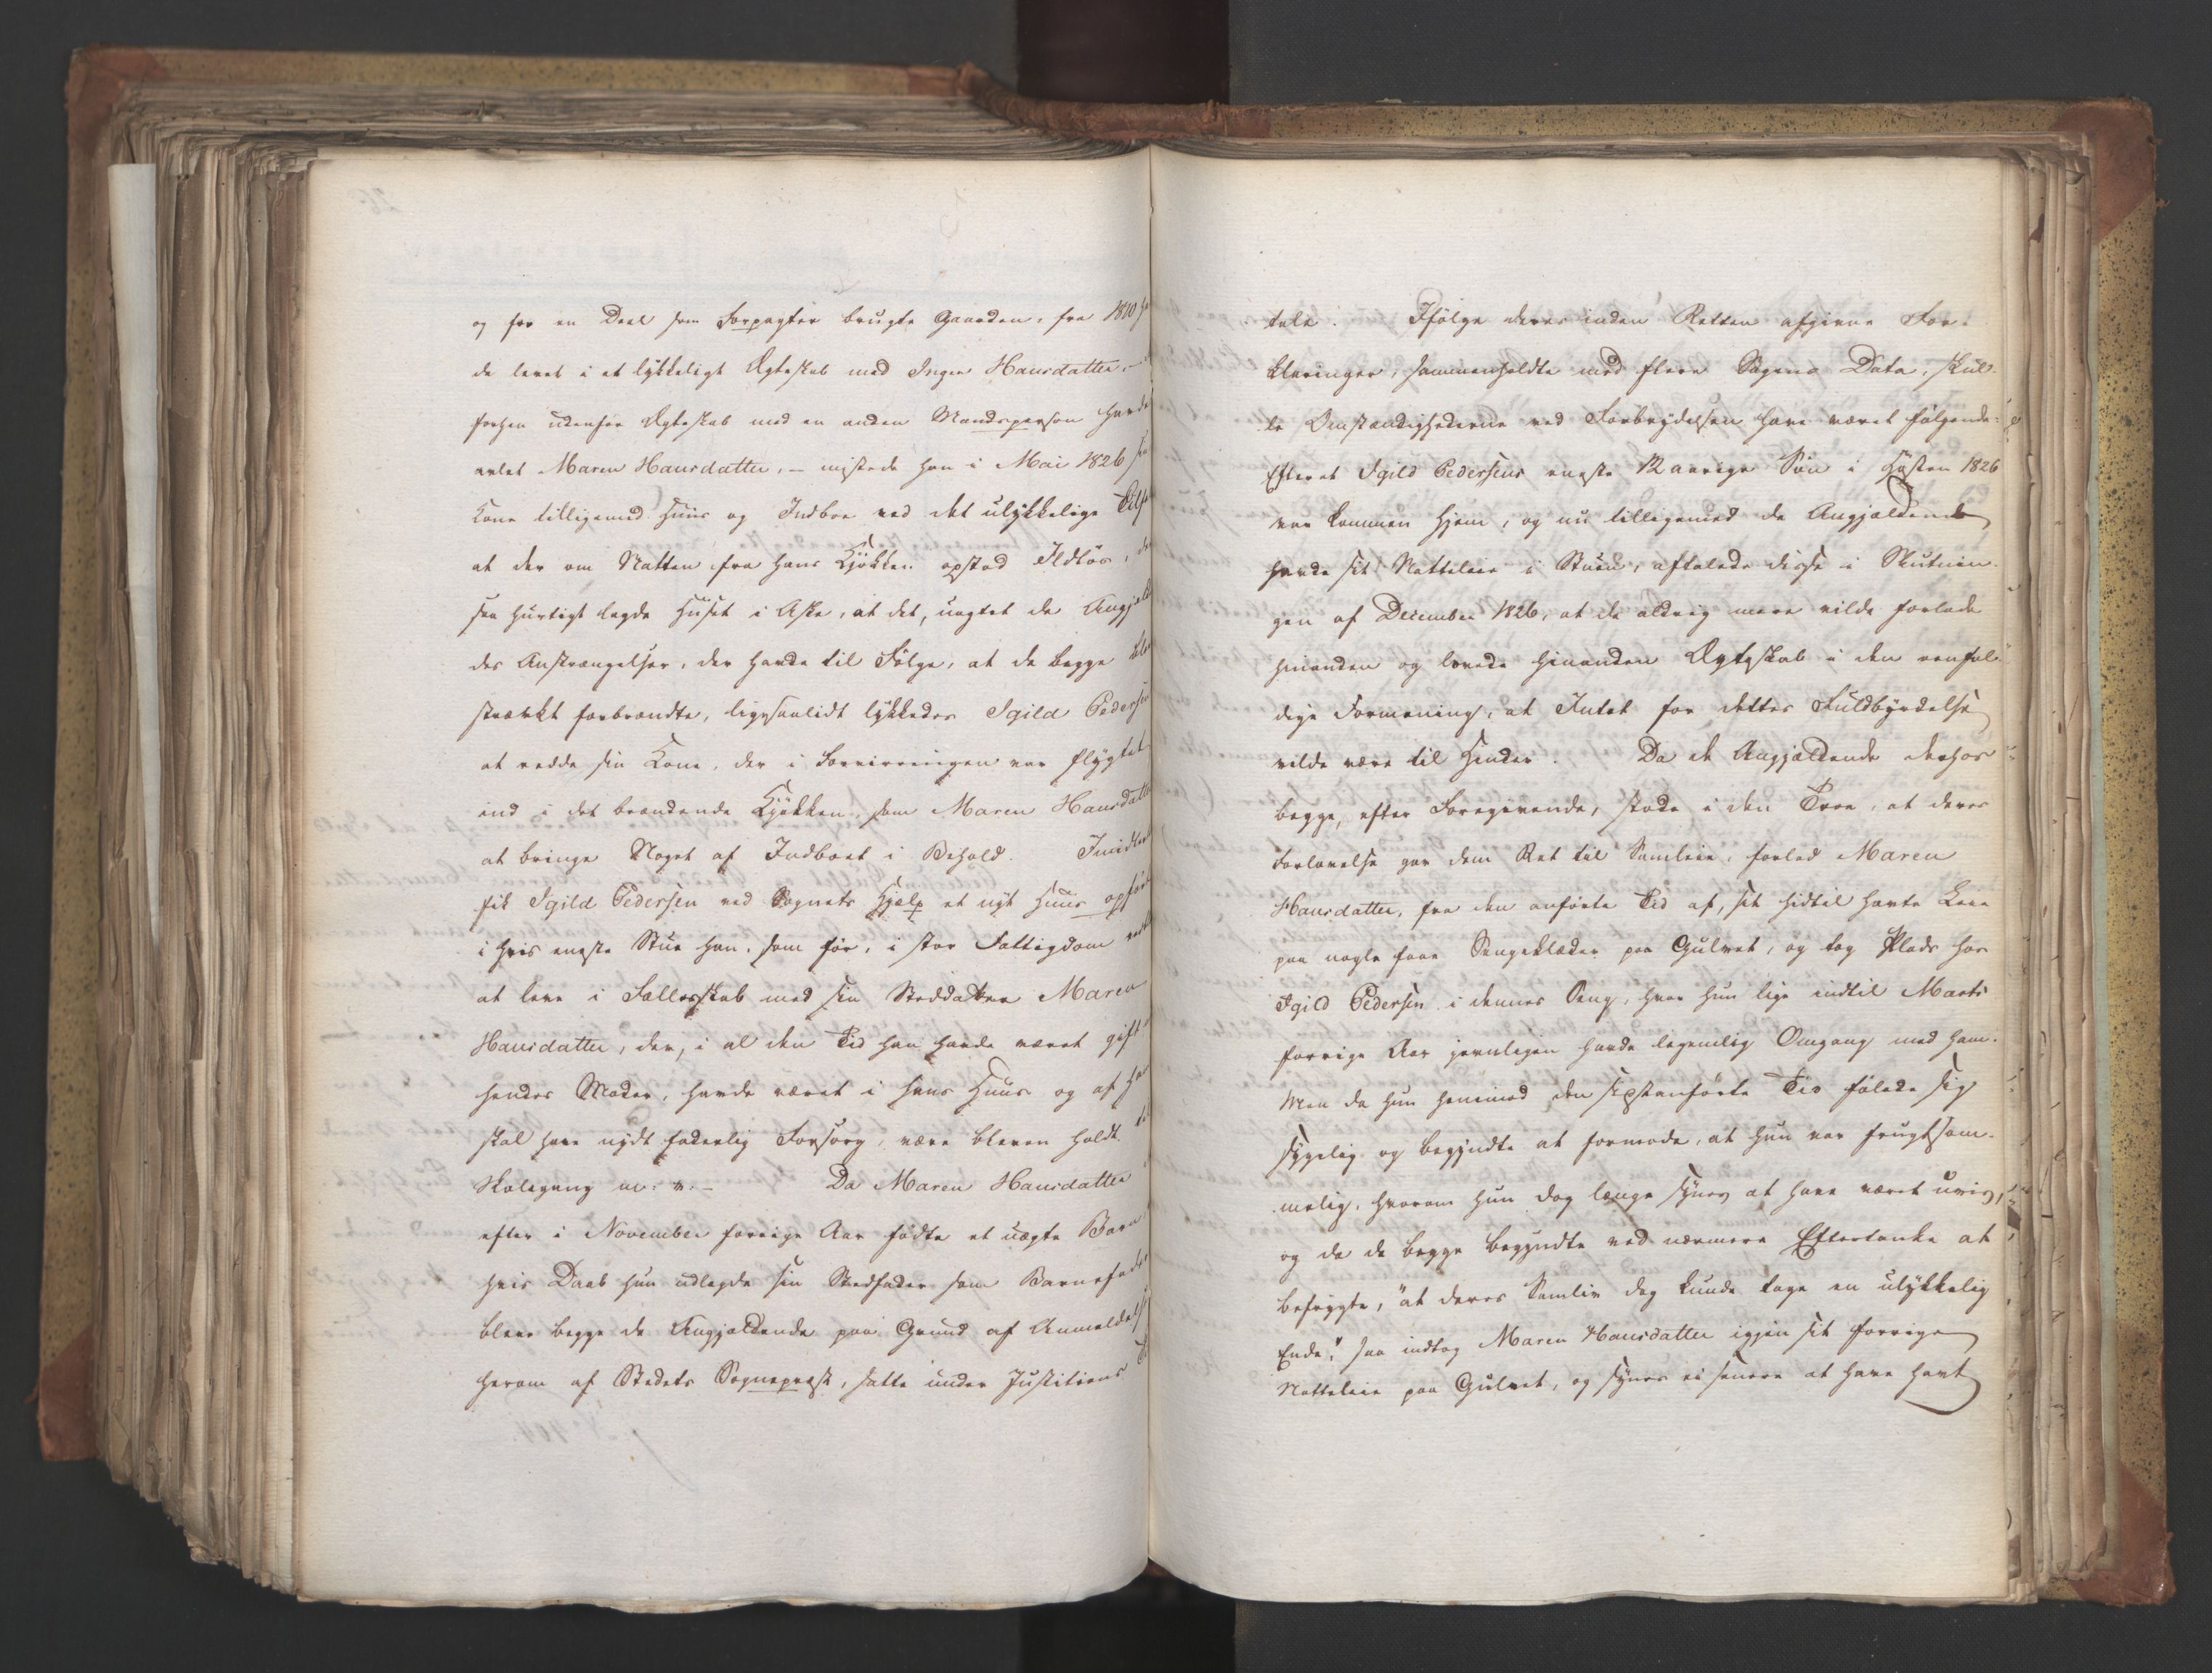 og for en Deel som Forpagter brugte Gaarden, fra 1810
de levet i et lykkeligt Ægteskab med Inger Hansdatter, –
forhen udenfor Ægteskab med en anden Mandsperson havde
avlet Maren Hansdatter, – mistede han i Mai 1826
Kone tilligemed Huus og Indboe ved det ulykkelige
at der om Natten fra hans Kjökken opstod Ildlös,
saa hurtigt lagde Huset i Aske, at det, uagtet de
des Anstrængelser, der havde til Fölge, at de begge
stærkt forbrændte, ligesaalidt lykkedes Igild Pedersen
at redde sin Kone, der i Forvirringen var flygtet
ind i det brændende Kjökken, som Maren Hansdatter
at bringe Noget af Indboet i Behold. Imidlertid
fik Igild Pedersen ved Sognets Hjælp et nyt Huus
i hvis eneste Stue han, som för, i stor Fattigdom
at leve i Fælledsskab med sin Steddatter Maren
Hansdatter, der, i al den Tid han havde været gift
hendes Moder, havde været i hans Huus og af
skal have nydt faderlig Forsorg, være bleven holdt
Skolegang m. v. – Da Maren Hansdatter
efter i November forrige Aar födte et uægte Barn
hvis Daab hun udlagde sin Stedfader som Barnefader
bleve begge de Angjældende paa Grund af Anmeldelse
herom af Stedets Sognepræst, satte under Justitiens
tale. Ifölge deres inden Retten afgivne For-
klaringer, sammenholdte med flere Sagens Data, skul-
le Omstændighederne ved Forbrydelsen have været fölgende:
Efterat Igild Pedersens eneste 12 aarige Sön i Hösten 1826
var kommen hjem, og nu tilligemed de Angjældende
havde sit Natteleie i Stuen, aftalede disse i Slutnin-
gen af December 1826, at de aldrig mere vilde forlade
hinanden og lovede hinanden Ægteskab i den eenfol-
dige Formening, at Intet for dettes Fuldbyrdelse
vilde være til Hinder. Da de Angjældende derhos
begge, efter Foregivende, stode i den Troe, at deres
Forlovelse gav dem Ret til Samleie, forlod Maren
Hansdatter, fra den anförte Tid af, sit hidtil havte Leie
paa nogle faae Sengeklæder paa Gulvet, og tog Plads hos
Igild Pedersen i dennes Seng, hvor hun lige indtil Marts
forrige Aar jevnligen havde legemlig Omgang med ham.
Men da hun henimod den sidstanförte Tid fölede sig
sygelig og begyndte at formode, at hun var frugtsom-
melig, hvorom hun dog længe synes at have været uvis,
og da de begge begyndte ved nærmere Eftertanke at
befrygte, "at deres Samliv dog kunde tage en ulykkelig
Ende," saa indtog Maren Hansdatter igjen sit forrige
Natteleie paa Gulvet, og synes ei senere at have havt